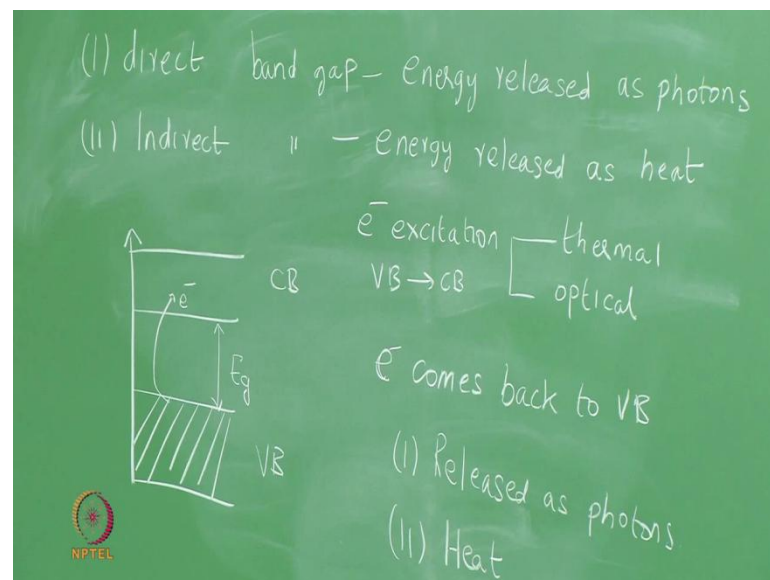 (I) direct band gap – energy released as photons
(II) Indirect " – energy released as heat
e⁻ excitation thermal
VB → CB optical
CB
e⁻
Eg
VB
e⁻ comes back to VB
(I) Released as photons
(II) Heat
NPTEL